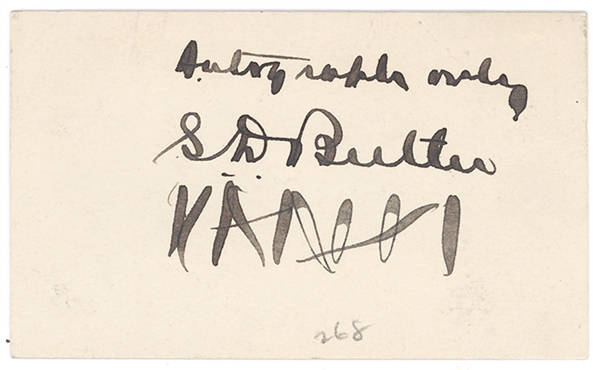 Autographs only
S D Butler
268